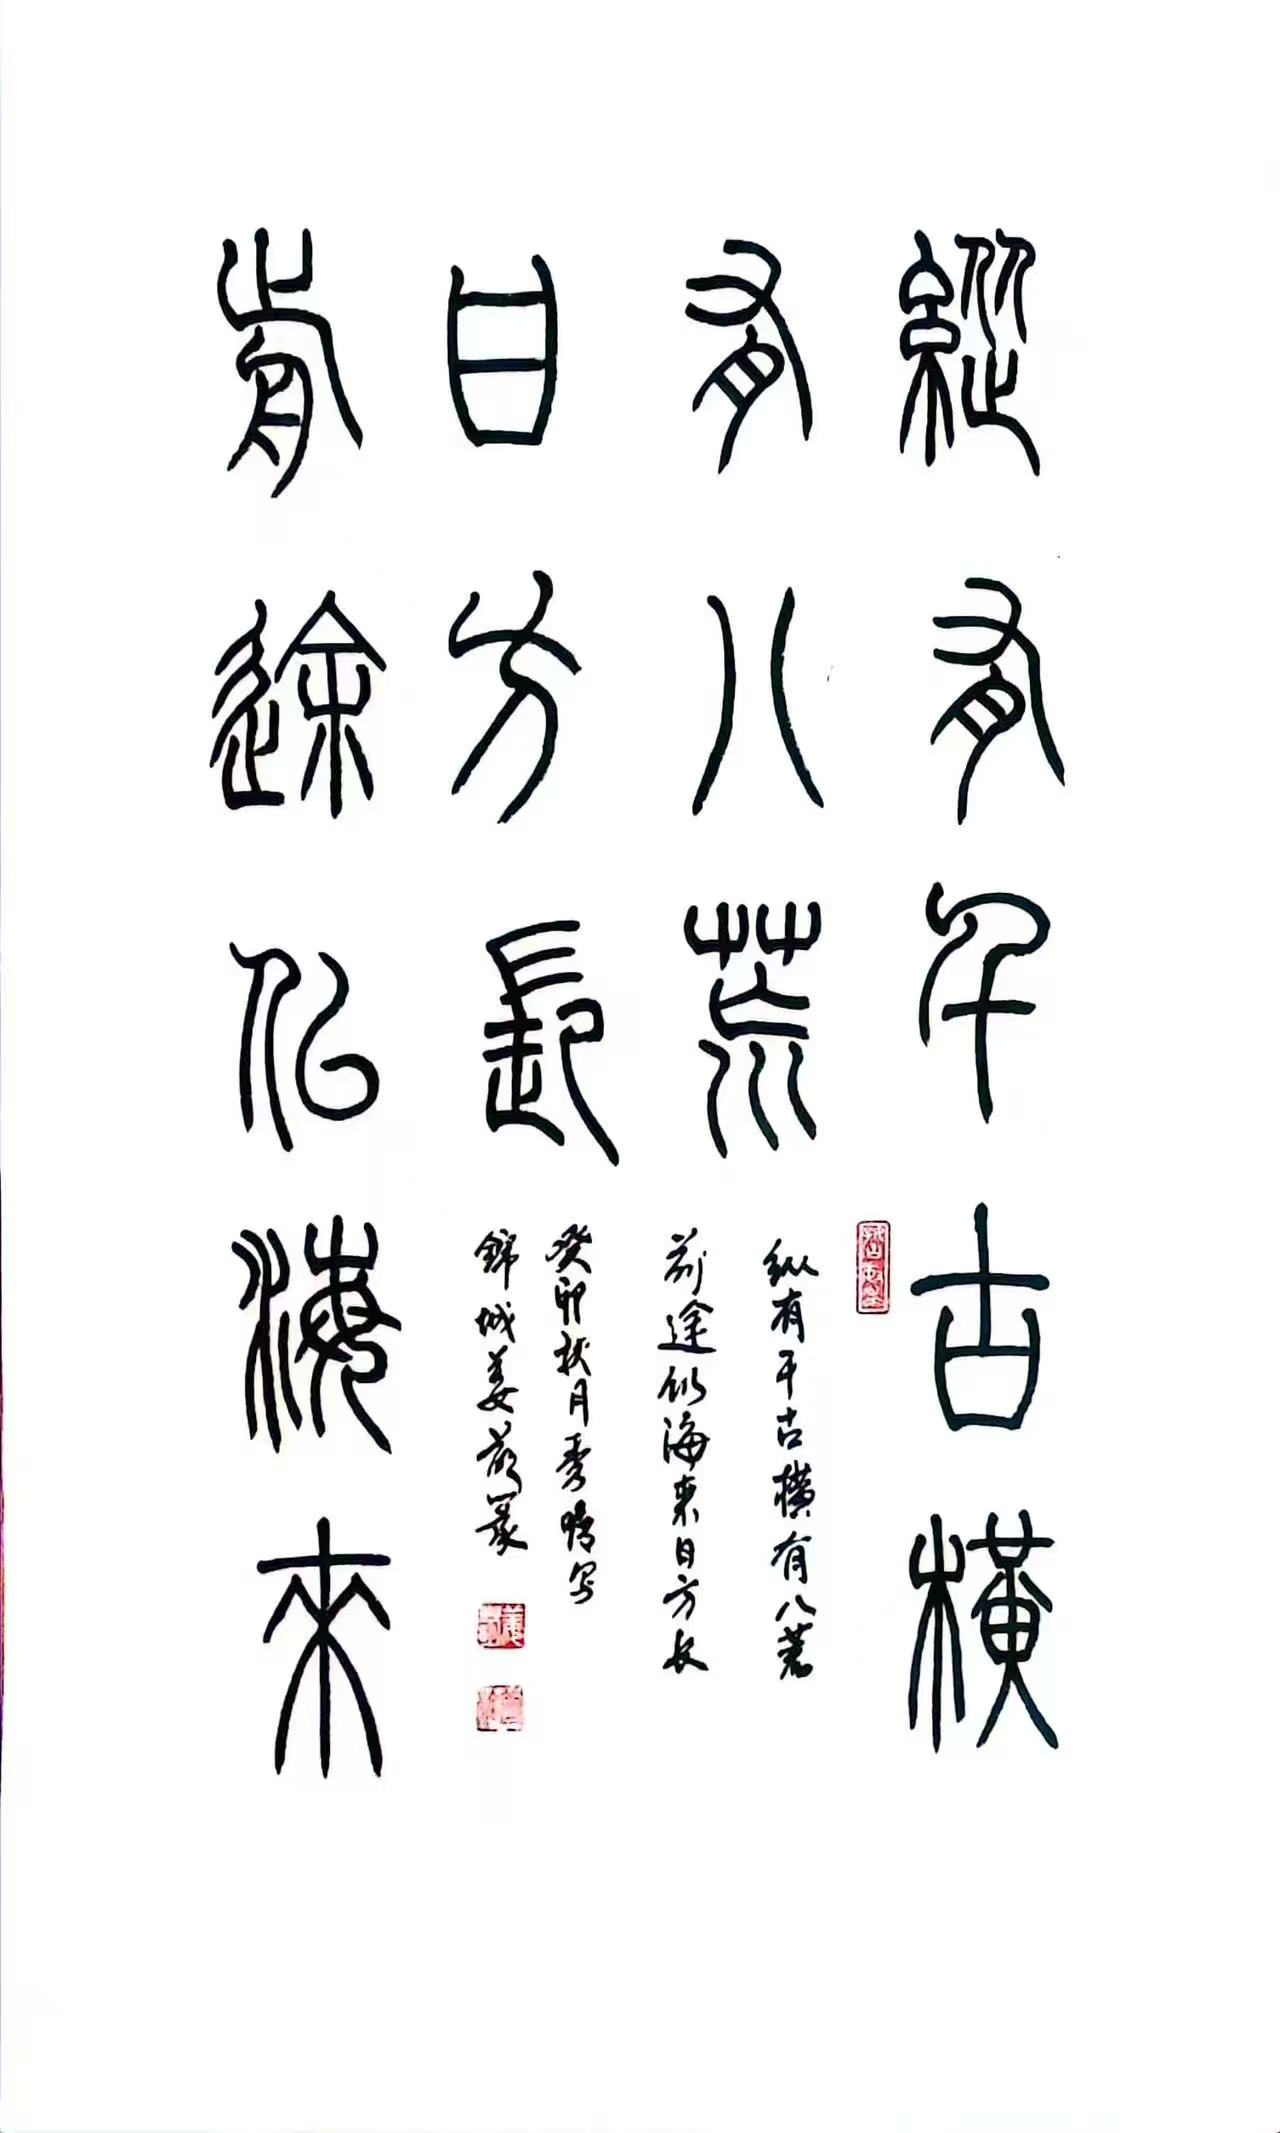 縱有千古橫
有八荒
前途似海來
日方長
纵有千古橫有八荒
前途似海来日方长
癸卯秋月
錦城姜篆